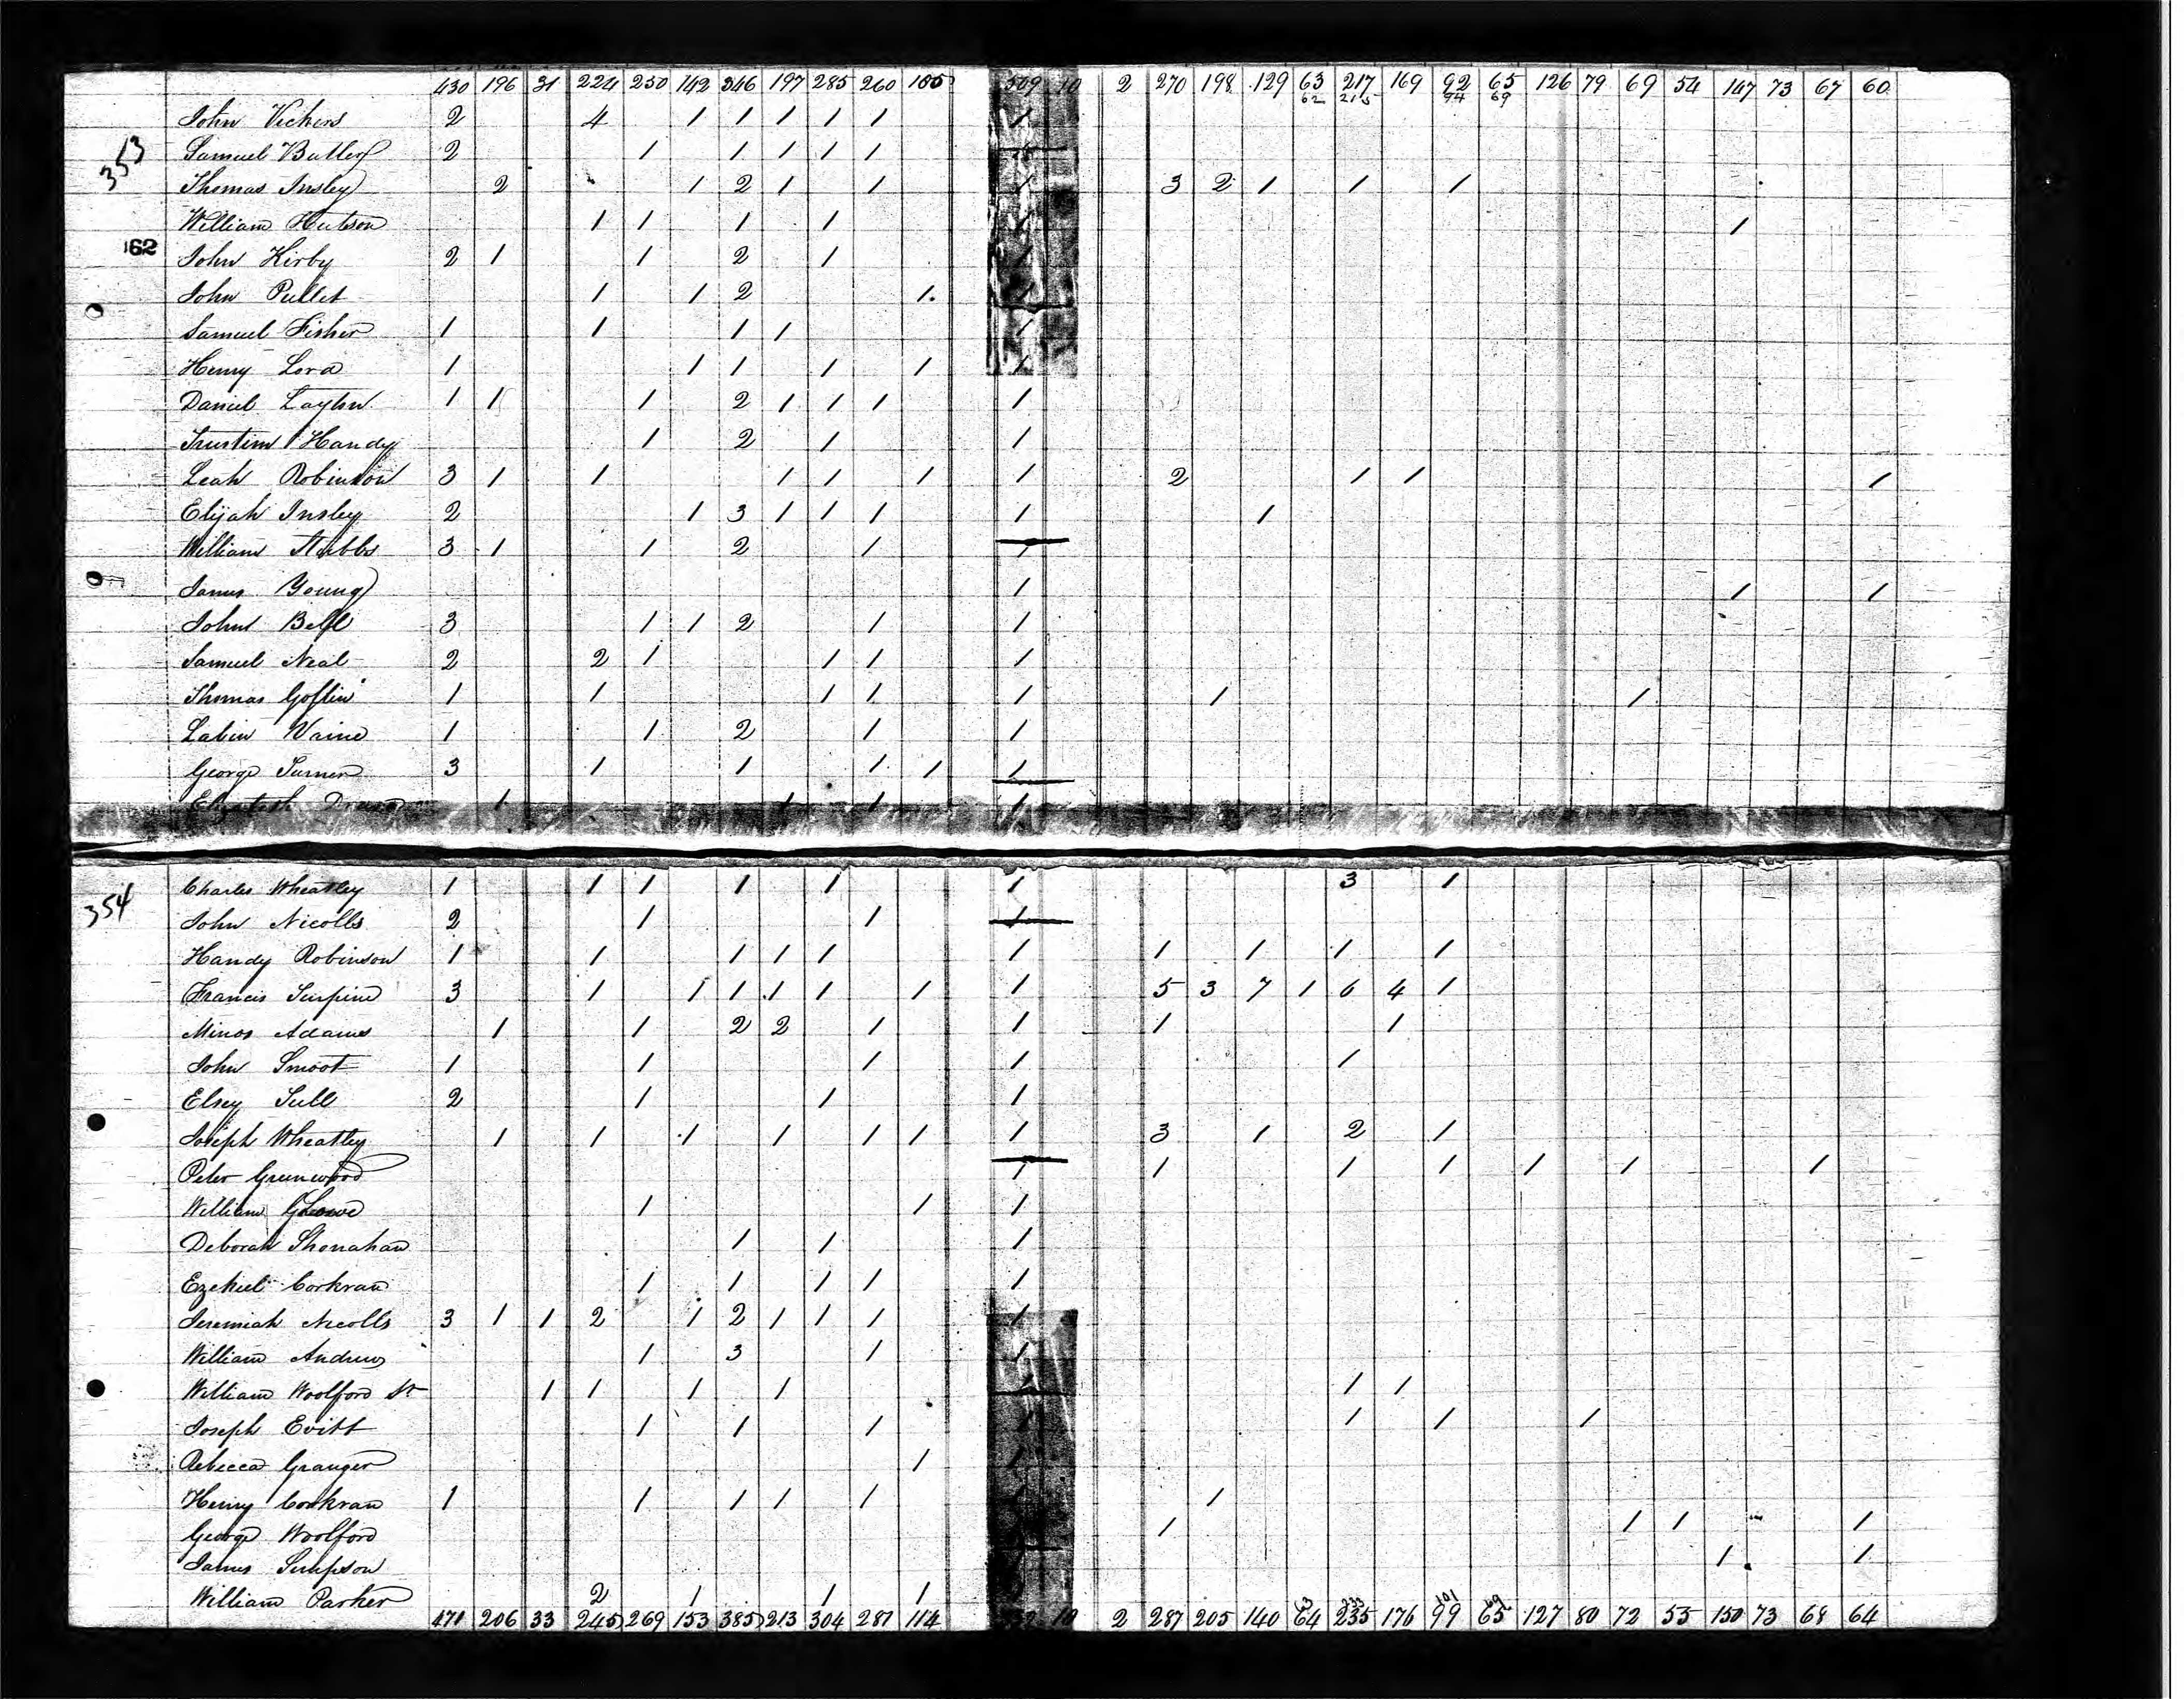 430 196 31 224 250 142 346 197 285 260 105 509 10 2 270 198 129 63 217 169 92 65 126 79 69 54 147 73 67 60
62 215 94 69
John Vickers 2 4 1 1 1 1 1 1
353
Samuel Butler 2 1 1 1 1 1 1
Thomas Insley 2 1 2 1 1 1 3 2 1 1 1
William Hutson 1 1 1 1 1
162
John Kirby 2 1 1 2 1 1
John Pullet 1 1 2 1 1
Samuel Fisher 1 1 1 1 1
Henry Lord 1 1 1 1 1 1
Daniel Layton 1 1 1 2 1 1 1 1
Handy 1 2 1 1
Leah Robinson 3 1 1 1 1 1 1 2 1 1 1
Elijah Insley 2 1 3 1 1 1 1 1
William Stubbs 3 1 1 2 1 1
James Young 1 1 1
John Bell 3 1 1 2 1 1
Samuel Neal 2 2 1 1 1 1
Thomas 1 1 1 1 1 1 1
1 1 2 1 1
George Turner 3 1 1 1 1 1
Elizabeth 1 1 1 1
Charles Wheatley 1 1 1 1 1 1 3 1
354
John Nicolls 2 1 1 1
Handy Robinson 1 1 1 1 1 1 1 1 1 1
Francis 3 1 1 1 1 1 1 1 5 3 7 1 6 4 1
Minos Adams 1 1 2 2 1 1 1 1
John Smoot 1 1 1 1 1
Elsey Tull 2 1 1 1
Joseph Wheatley 1 1 1 1 1 1 1 3 1 2 1
Peter Greenwood 1 1 1 1 1 1 1
William 1 1 1
Deborah Shonahan 1 1 1
Ezekiel Corkran 1 1 1 1 1
Jeremiah Nicolls 3 1 1 2 1 2 1 1 1 1
William Andrews 1 3 1 1
William Woolford Sr 1 1 1 1 1 1 1
Joseph Evitt 1 1 1 1 1 1 1
Rebecca Granger 1 1
Henry Corkran 1 1 1 1 1 1
George Woolford 1 1 1 1
James Simpson 1 1
William Parker 2 1 1 1
471 206 33 245 269 153 385 213 304 281 114 10 2 287 205 140 64 235 176 99 65 127 80 72 55 150 73 68 64